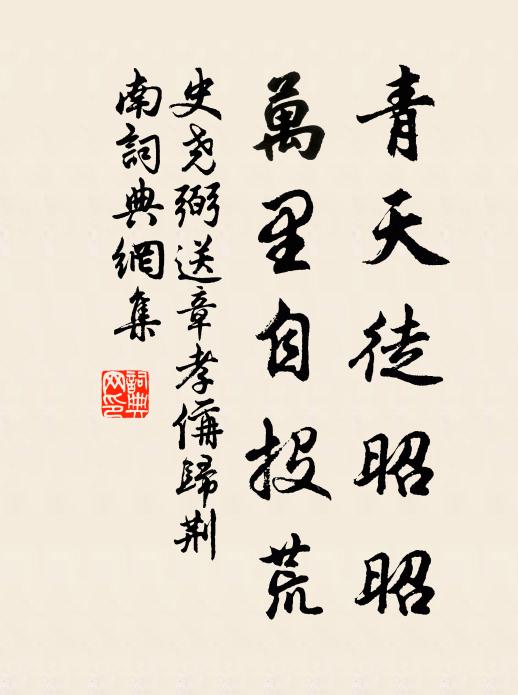 青天徒昭昭
萬里自投荒
史堯弼送章孝偁歸荆
南詞典網集
詞典
網印